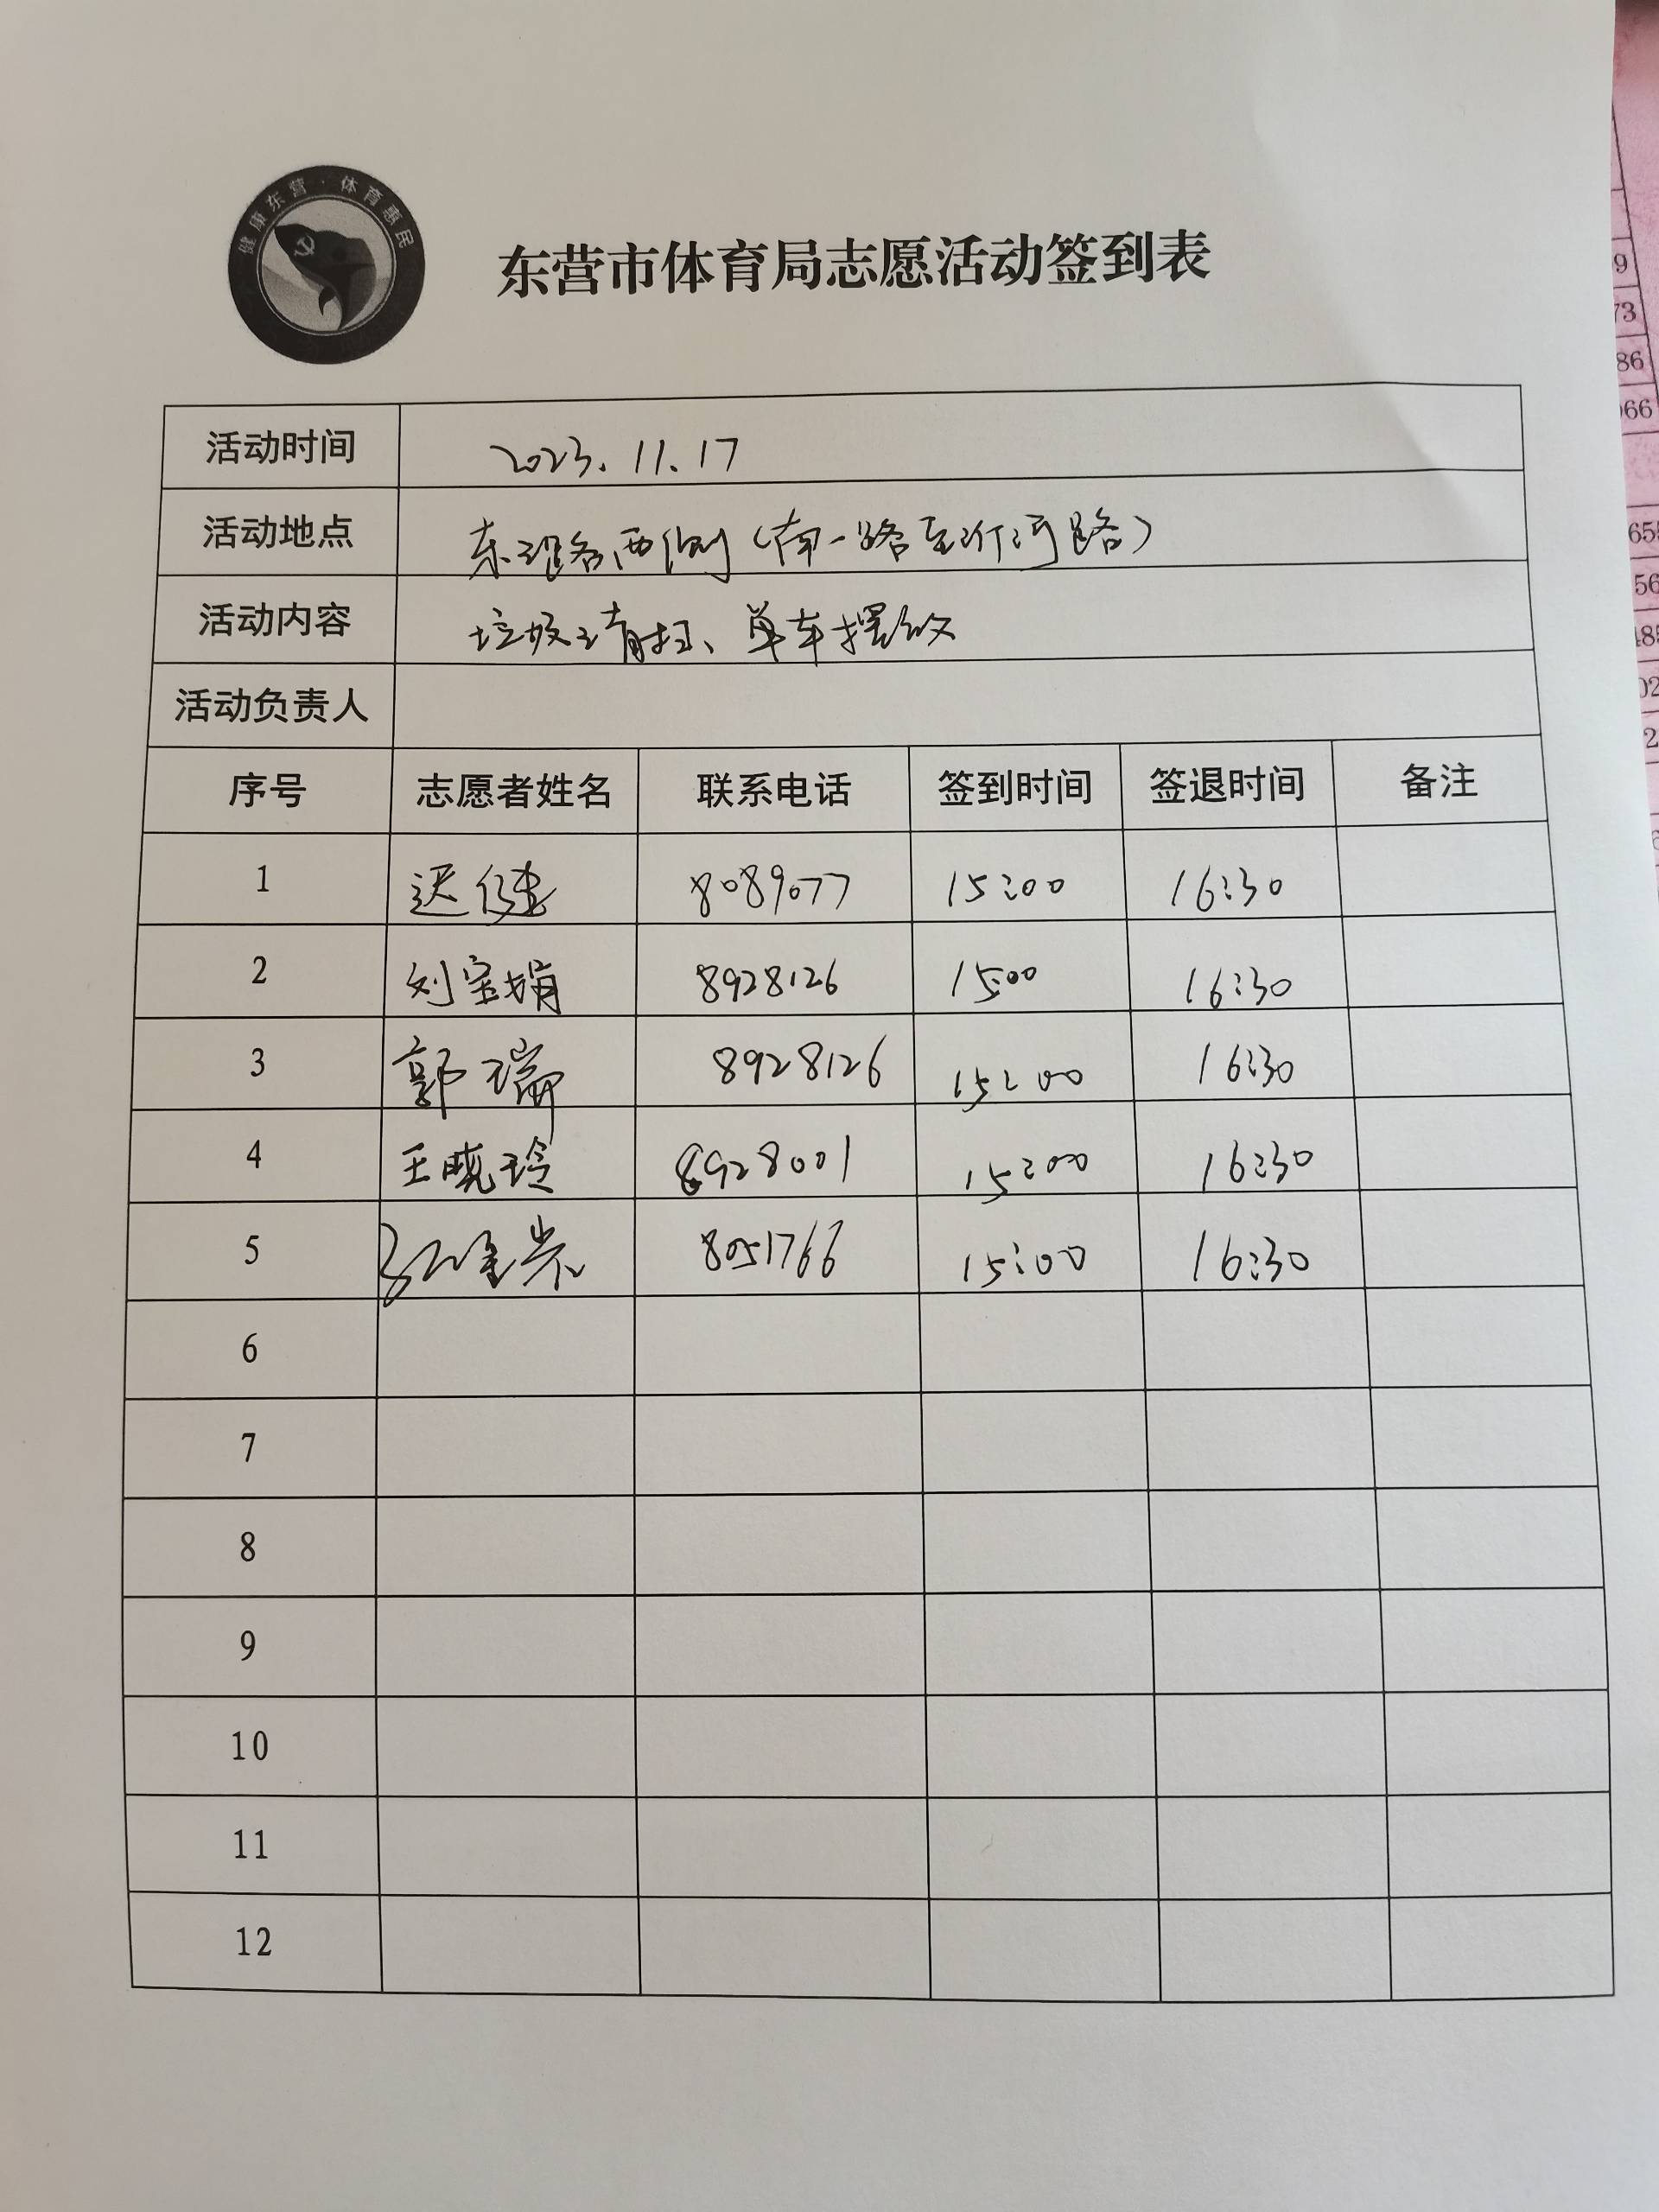 健康东营·体育惠民
东营市体育局志愿活动签到表
活动时间 2023.11.17
活动地点 东二路两侧(南一路至沂河路)
活动内容 垃圾清扫、单车摆放
活动负责人
序号 志愿者姓名 联系电话 签到时间 签退时间 备注
1 迟健 8089077 15:00 16:30
2 刘宝娟 8928126 15:00 16:30
3 郭瑞 8928126 15:00 16:30
4 王晓玲 8928001 15:00 16:30
5 8051766 15:00 16:30
6
7
8
9
10
11
12
9
73
86
66